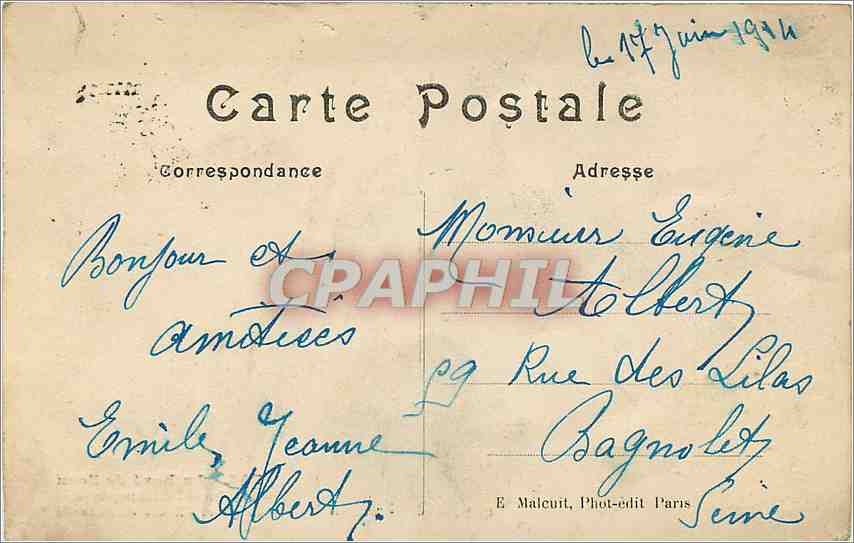 le 17 Juin 1914
Carte Postale
Correspondance
Adresse
Bonjour et
amitiées
Emile, Jeanne
Albert.
Monsieur Eugène
Albert
59 Rue des Lilas
Bagnolet
Seine
E Malcuit, Phot-édit Paris
CPAPHIL